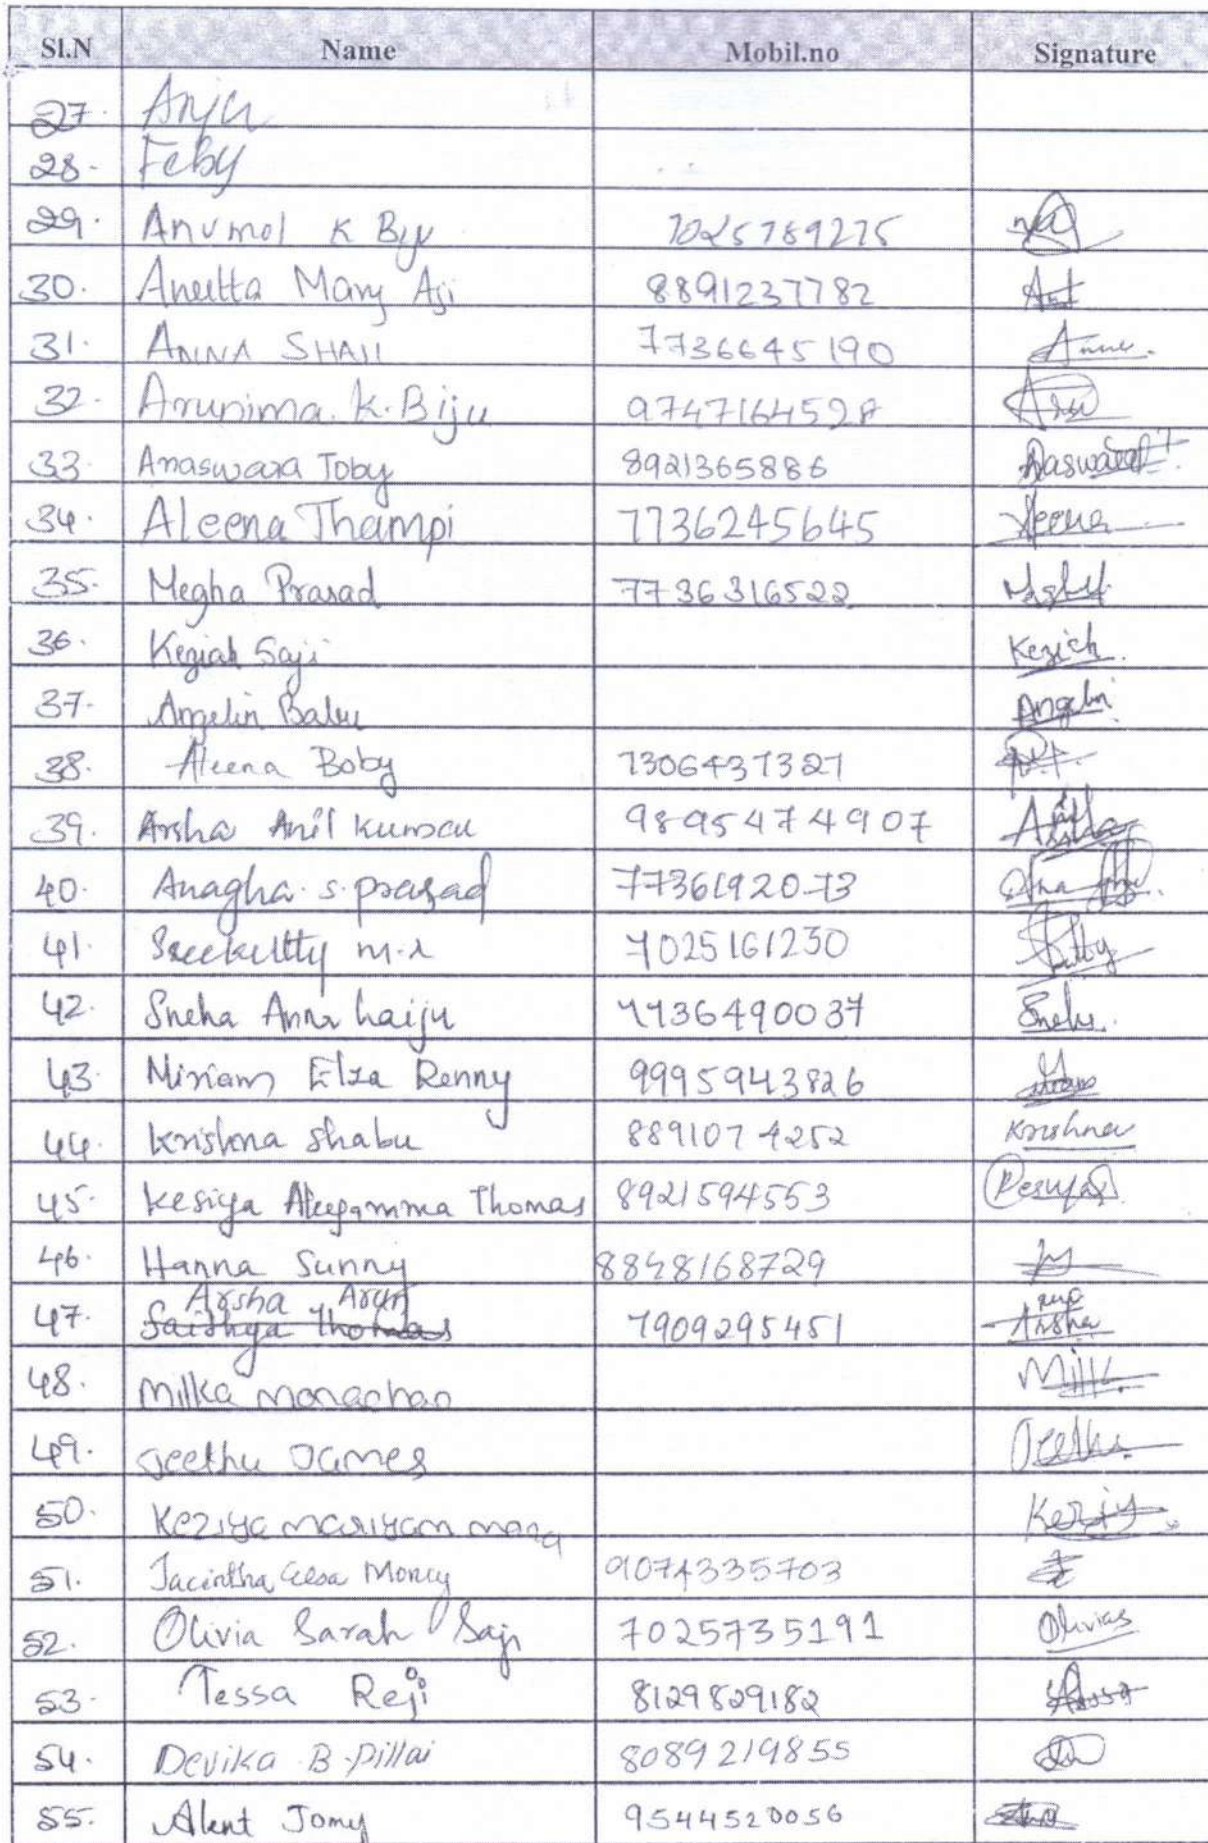 Sl.N Name Mobil.no Signature
27. Anju
28. Feby
29. Anumol K Biju 7025789275
30. Aneetta Mary Aji 8891237782
31. ANNA SHAJI 7736645190 Anna.
32. Arunima. K. Biju 974716452
33. Anaswara Toby 8921365886
34. Aleena Thampi 7736245645 Aleena
35. Megha Prasad 7736316522
36. Keziah Saji Keziah.
37. Angelin Babu Angelin
38. Aleena Boby 7306437327
39. Arsha Anil kumar 9895474907 Arsha
40. Anagha. s. prasad 7736192073
41. Sreekutty m.r 7025161230
42. Sneha Anna Laiju 7736490037 Sneha.
43. Miriam Elza Renny 9995943826
44. krishna shabu 8891074252 Krishna
45. kesiya Aleyamma Thomas 8921594553
46. Hanna Sunny 8848168729
Arsha Arun
47. Thomas 7909295451 Arsha
48. Milka monachan Milka
49. Jeethu James Jeethu
50. Keziya mariyam mana Keziy
51. Jacintha Elsa Money 9074335703
52. Olivia Sarah Saji 7025735191 Olivias
53. Tessa Reji 8129829182
54. Devika B. Pillai 8089219855
55. Alent Jomy 9544520056